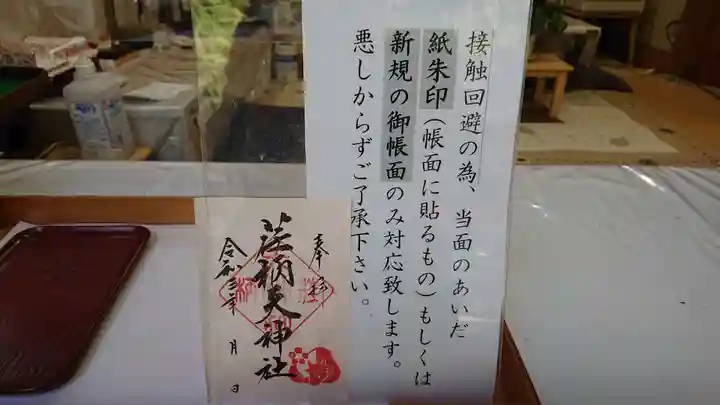 接触回避の為、当面のあいだ
紙朱印(帳面に貼るもの)もしくは
新規の御帳面のみ対応致します。
悪しからずご了承下さい。
奉拝
荏柄天神社
令和三年 月 日